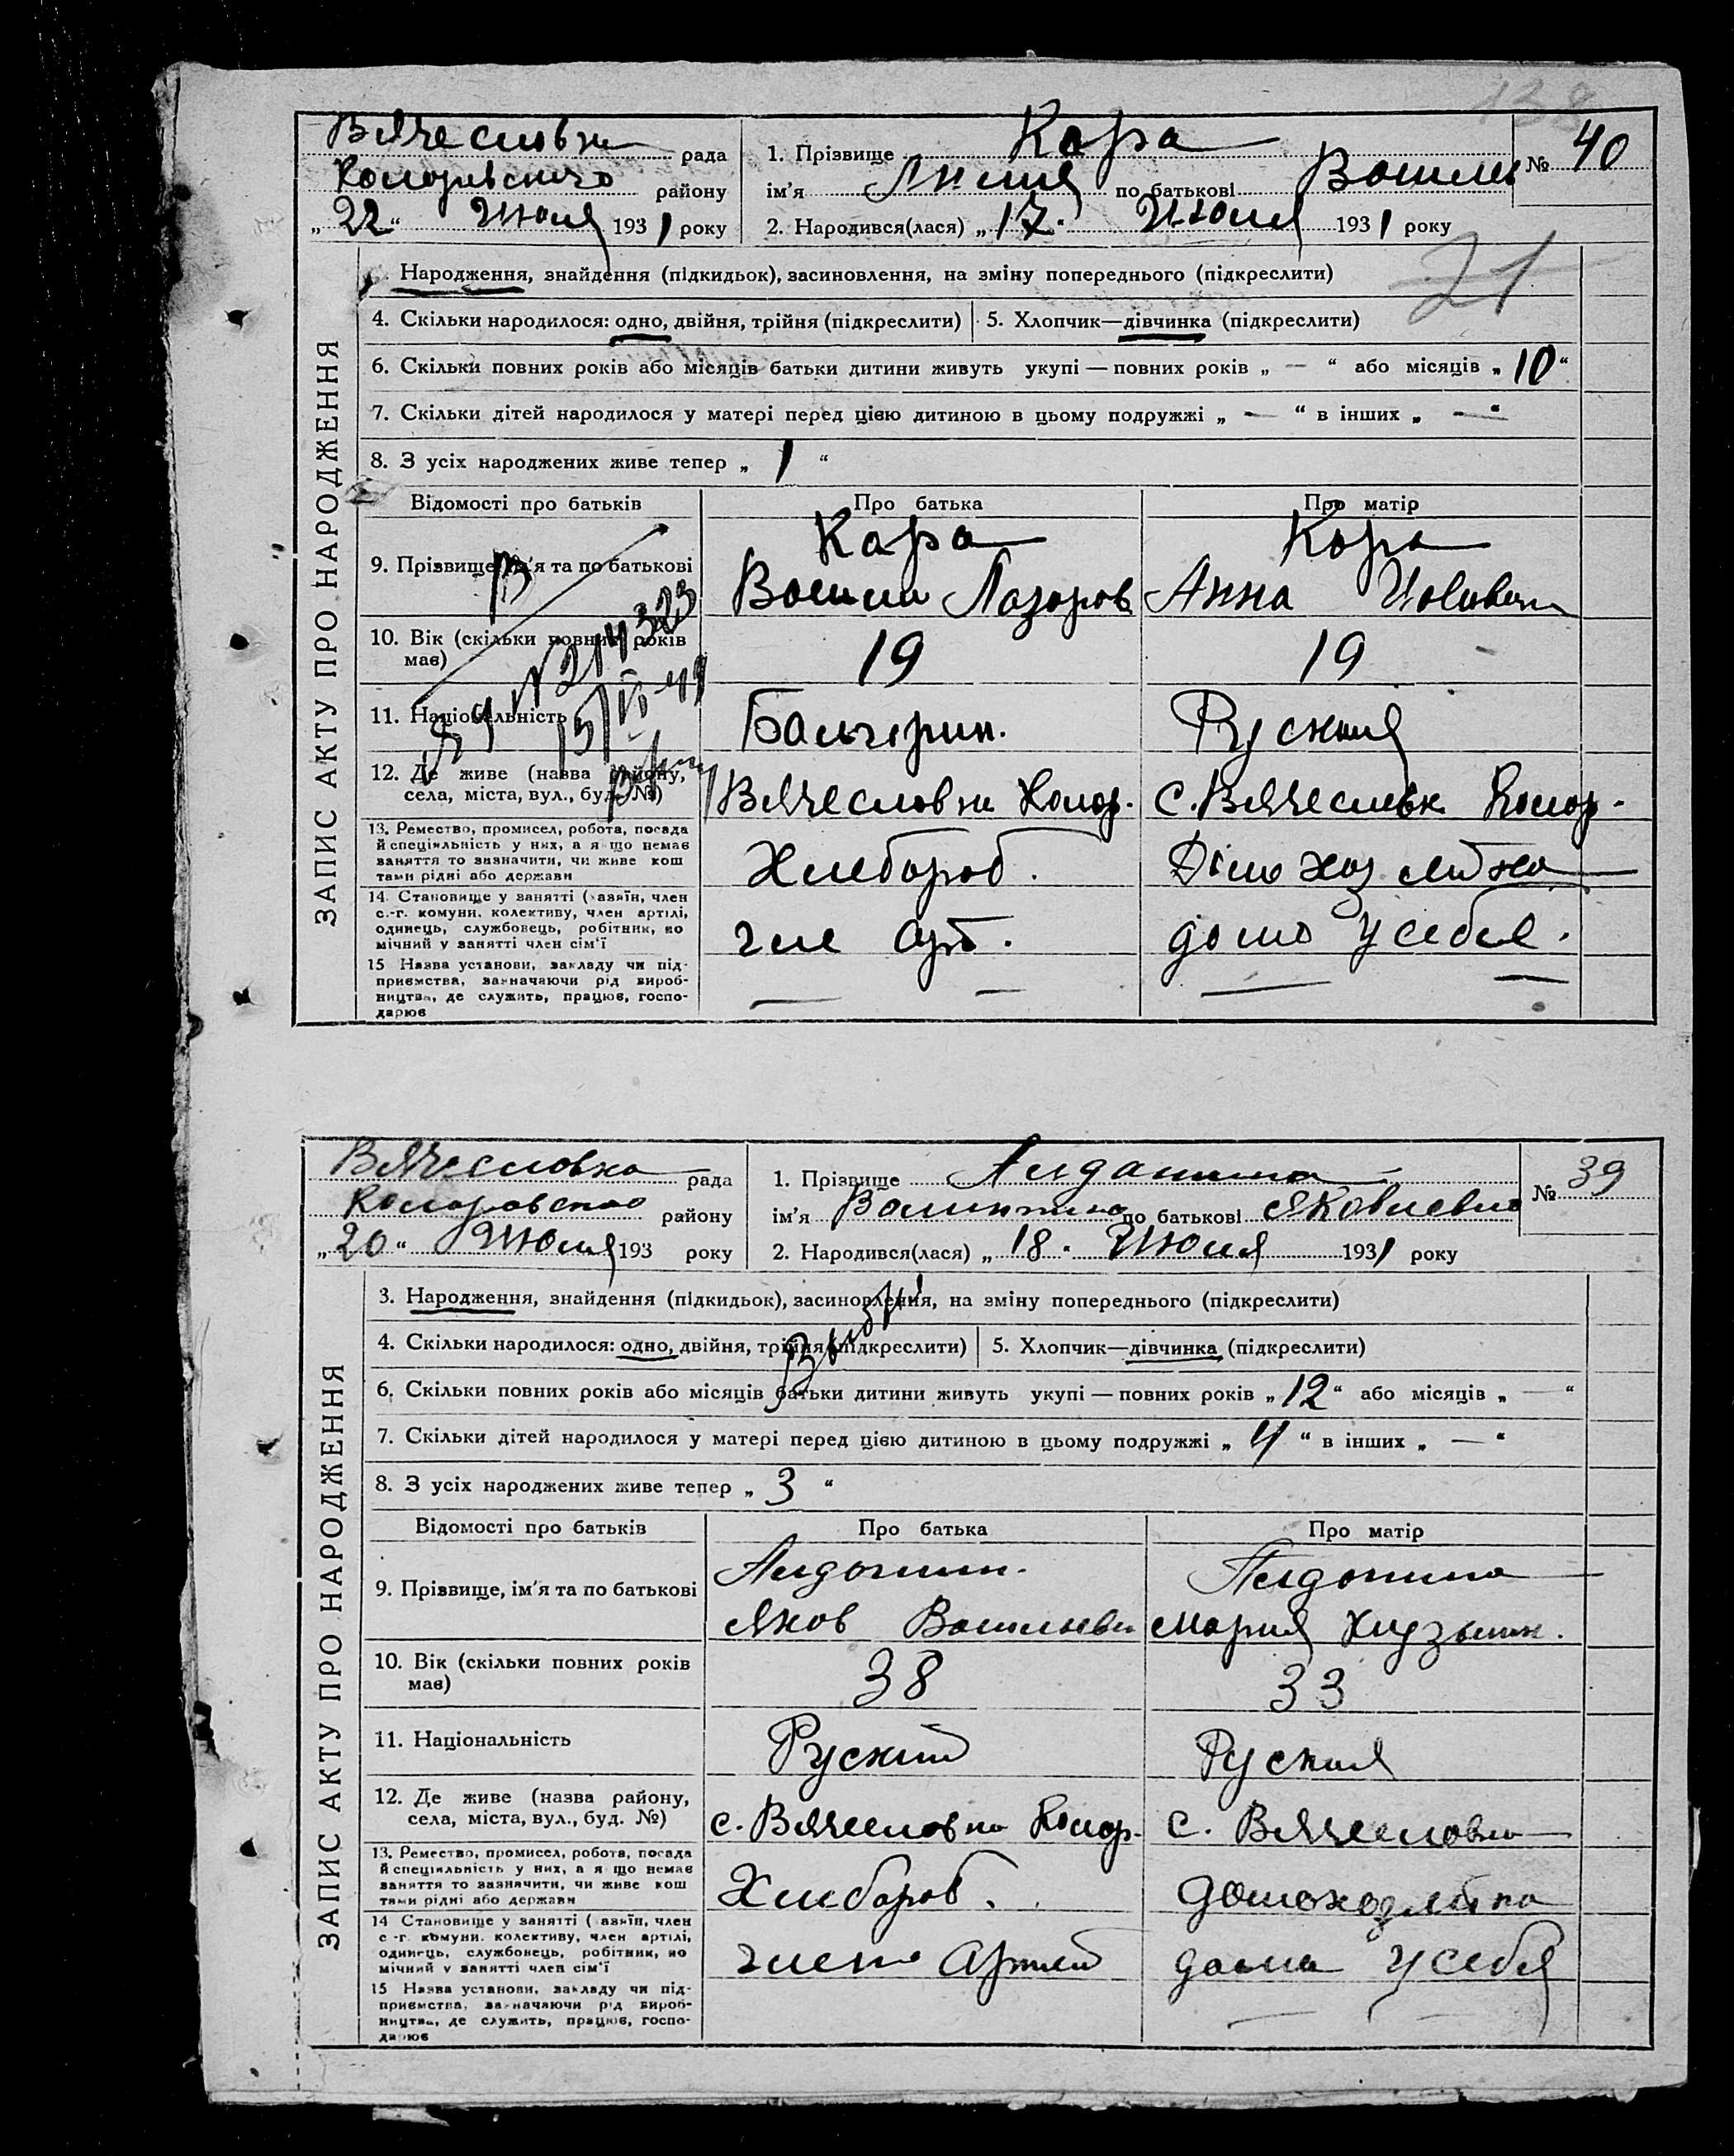 138
Вячесловка рада
Коларовского району
„ 22 “ Июля 1931 року
1. Прізвище Кара
ім'я по батькові Васили
№ 40
2. Народився(лася) „ 17 “ Июля 1931 року
21
ЗАПИС АКТУ ПРО НАРОДЖЕННЯ
Народження, знайдення (підкидьок), засиновлення, на зміну попереднього (підкреслити)
4. Скільки народилося: одно, двійня, трійня (підкреслити) 5. Хлопчик—дівчинка (підкреслити)
6. Скільки повних років або місяців батьки дитини живуть укупі — повних років „ — “ або місяців „ 10 “
7. Скільки дітей народилося у матері перед цією дитиною в цьому подружжі „ — “ в інших „ — “
8. З усіх народжених живе тепер „ 1 “
Відомості про батьків Про батька Про матір
9. Прізвище, ім'я та по батькові
Кара
Василий Лазаров
Кара
Анна
10. Вік (скільки повних років має) 19 19
11. Національність Балгарин. Руская
12. Де живе (назва району, села, міста, вул., буд. №)
Вячесловка Колар.
с. Вячесловк Колар.
13. Ремество, промисел, робота, посада
й спеціяльність у них, а якщо немає
заняття то зазначити, чи живе кош
тами рідні або держави
Хлебороб.
Домохозяйка
14. Становище у занятті (хазяїн, член
с.-г. комуни, колективу, член артілі,
одинець, службовець, робітник, по
мічний у занятті член сім'ї
член арт.
дома у себя.
15 Назва установи, закладу чи під-
приємства, зазначаючи рід вироб-
ництва, де служить, працює, госпо-
дарює
— — — —
Вячесловка рада
Коларовского району
„ 20 “ Июля 193 року
1. Прізвище Алдошина
ім'я Валинтина по батькові Яковлевна
№ 39
2. Народився(лася) „ 18 “ Июля 1931 року
ЗАПИС АКТУ ПРО НАРОДЖЕННЯ
3. Народження, знайдення (підкидьок), засиновлення, на зміну попереднього (підкреслити)
4. Скільки народилося: одно, двійня, трійня (підкреслити) 5. Хлопчик—дівчинка (підкреслити)
6. Скільки повних років або місяців батьки дитини живуть укупі — повних років „ 12 “ або місяців „ — “
7. Скільки дітей народилося у матері перед цією дитиною в цьому подружжі „ 4 “ в інших „ — “
8. З усіх народжених живе тепер „ 3 “
Відомості про батьків Про батька Про матір
9. Прізвище, ім'я та по батькові
Алдошин.
Яков Васильеви
Алдошина
Мария Кузьмин.
10. Вік (скільки повних років має) 38 33
11. Національність Руский Руская
12. Де живе (назва району, села, міста, вул., буд. №)
с. Вячесловка Колар.
с. Вячесловка
13. Ремество, промисел, робота, посада
й спеціяльність у них, а якщо немає
заняття то зазначити, чи живе кош
тами рідні або держави
Хлебороб.
домохозяйка
14 Становище у занятті (хазяїн, член
с.-г. комуни, колективу, член артілі,
одинець, службовець, робітник, по
мічний у занятті член сім'ї
член Артили
дома у себя
15 Назва установи, закладу чи під-
приємства, зазначаючи рід вироб-
ництва, де служить, працює, госпо-
дарює